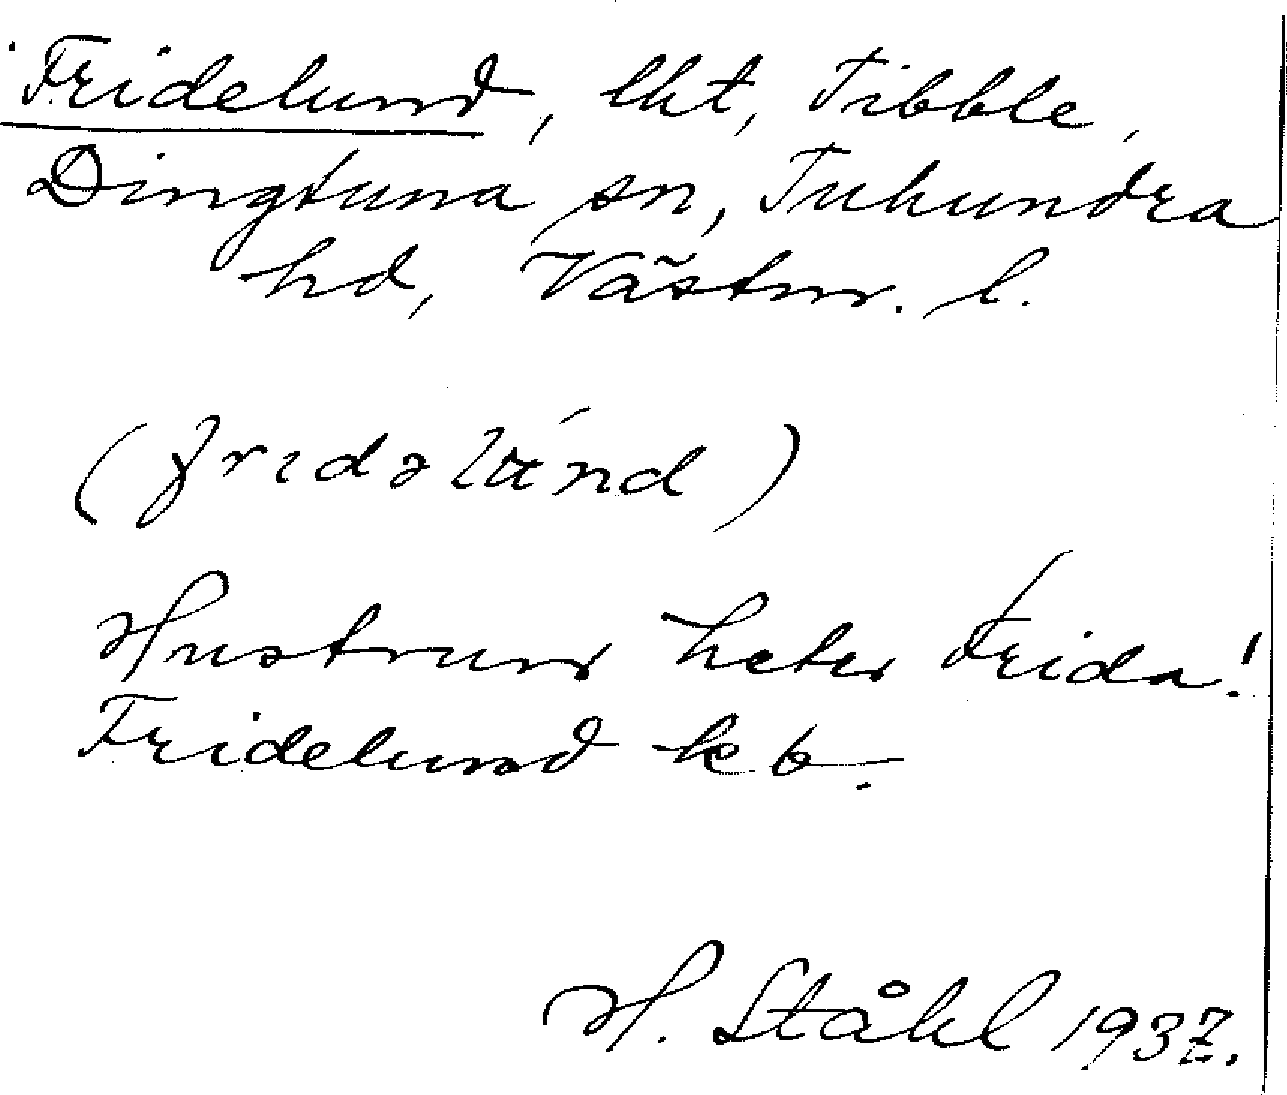 Fridelund, lht, Tibble,
Dingtuna sn, Tuhundra
hd, Västm. l.
(fridəlɯ́nd)
Hustrun heter Frida!
Fridelund kb.
H. Ståhl 1937.